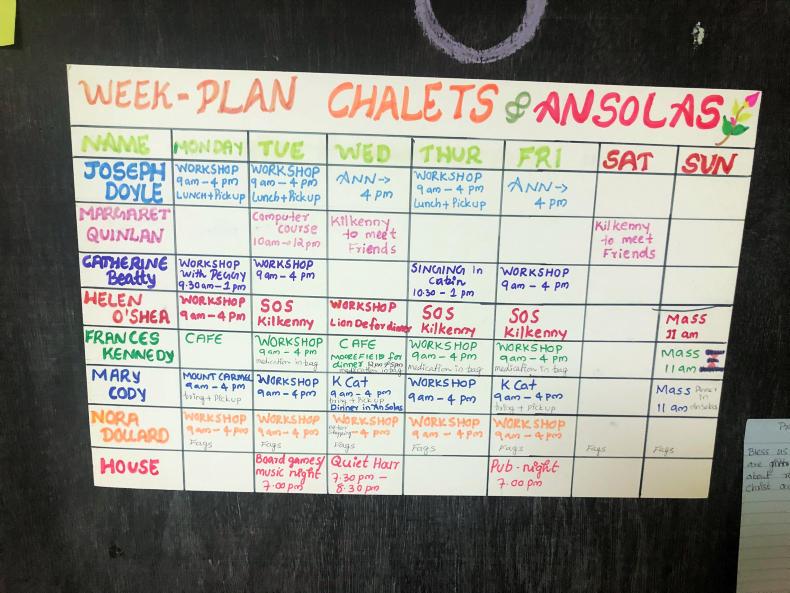 WEEK-PLAN CHALETS & ANSOLAS
NAME MONDAY TUE WED THUR FRI SAT SUN
JOSEPH DOYLE
WORKSHOP
9am - 4 pm
LUNCH + Pickup
WORKSHOP
9am - 4 pm
Lunch + Pickup
ANN →
4 pm
WORKSHOP
9am - 4 pm
Lunch + Pickup
ANN →
4 pm
MARGARET QUINLAN
Computer
course
10am → 12pm
Kilkenny
to meet
Friends
Kilkenny
to meet
Friends
CATHERINE Beatty
WORKSHOP
with PEGGY
9.30am - 1pm
WORKSHOP
9am - 4 pm
SINGING in
Cabin
10.30 - 1 pm
WORKSHOP
9am - 4 pm
HELEN O'SHEA
WORKSHOP
9am - 4 pm
SOS
Kilkenny
WORKSHOP
Lion De for dinner
SOS
Kilkenny
SOS
Kilkenny
Mass
11 am
FRANCES KENNEDY
CAFE
WORKSHOP
9am - 4 pm
medication in bag
CAFE
MOOREFIELD for
dinner
medication in bag
WORKSHOP
9am - 4 pm
medication in bag
WORKSHOP
9am - 4 pm
medication in bag
Mass
11 am
MARY CODY
MOUNT CARMEL
9am - 4 pm
bring + Pickup
WORKSHOP
9am - 4 pm
K Cat
9am - 4 pm
bring + Pickup
Dinner in Ansolas
WORKSHOP
9am - 4 pm
K Cat
9am - 4 pm
bring + Pickup
Mass Dinner
in
11 am Ansolas
NORA DOLLARD
WORKSHOP
9am - 4 pm
Fags
WORKSHOP
9am - 4 pm
Fags
WORKSHOP
9am - 4 pm
Fags
WORKSHOP
9am - 4 pm
Fags
WORKSHOP
9am - 4 pm
Fags
Fags
Fags
HOUSE
Board games/
music night
7.00 pm
Quiet Hour
7.30 pm -
8.30 pm
Pub night
7.00 pm
Bless us
are
about
Christ